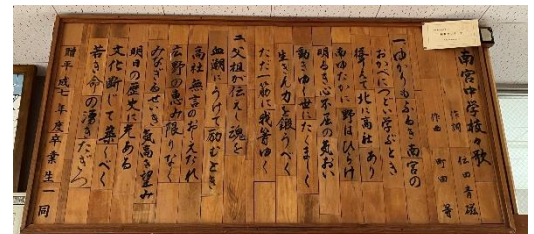 南宮中学校々歌
作詞 仁田青磁
作曲 町田等
一ゆかりもふるき南宮の
おかべにつどい学ぶとき
聳えて北に高社あり
南ゆたかに野はひらけ
明るき心不屈の気おい
動きゆく世にたくましく
生きん力を鍛うべく
ただ一筋に我等ゆく
二父祖が伝えし魂を
血潮にうけて励むとき
高社無言のおしえたれ
広野の恵み限りなく
みなぎるせいき気高き望み
明日の歴史に光ある
文化断じて築くべく
若き命の湧きたぎつ
贈平成七年度卒業生一同